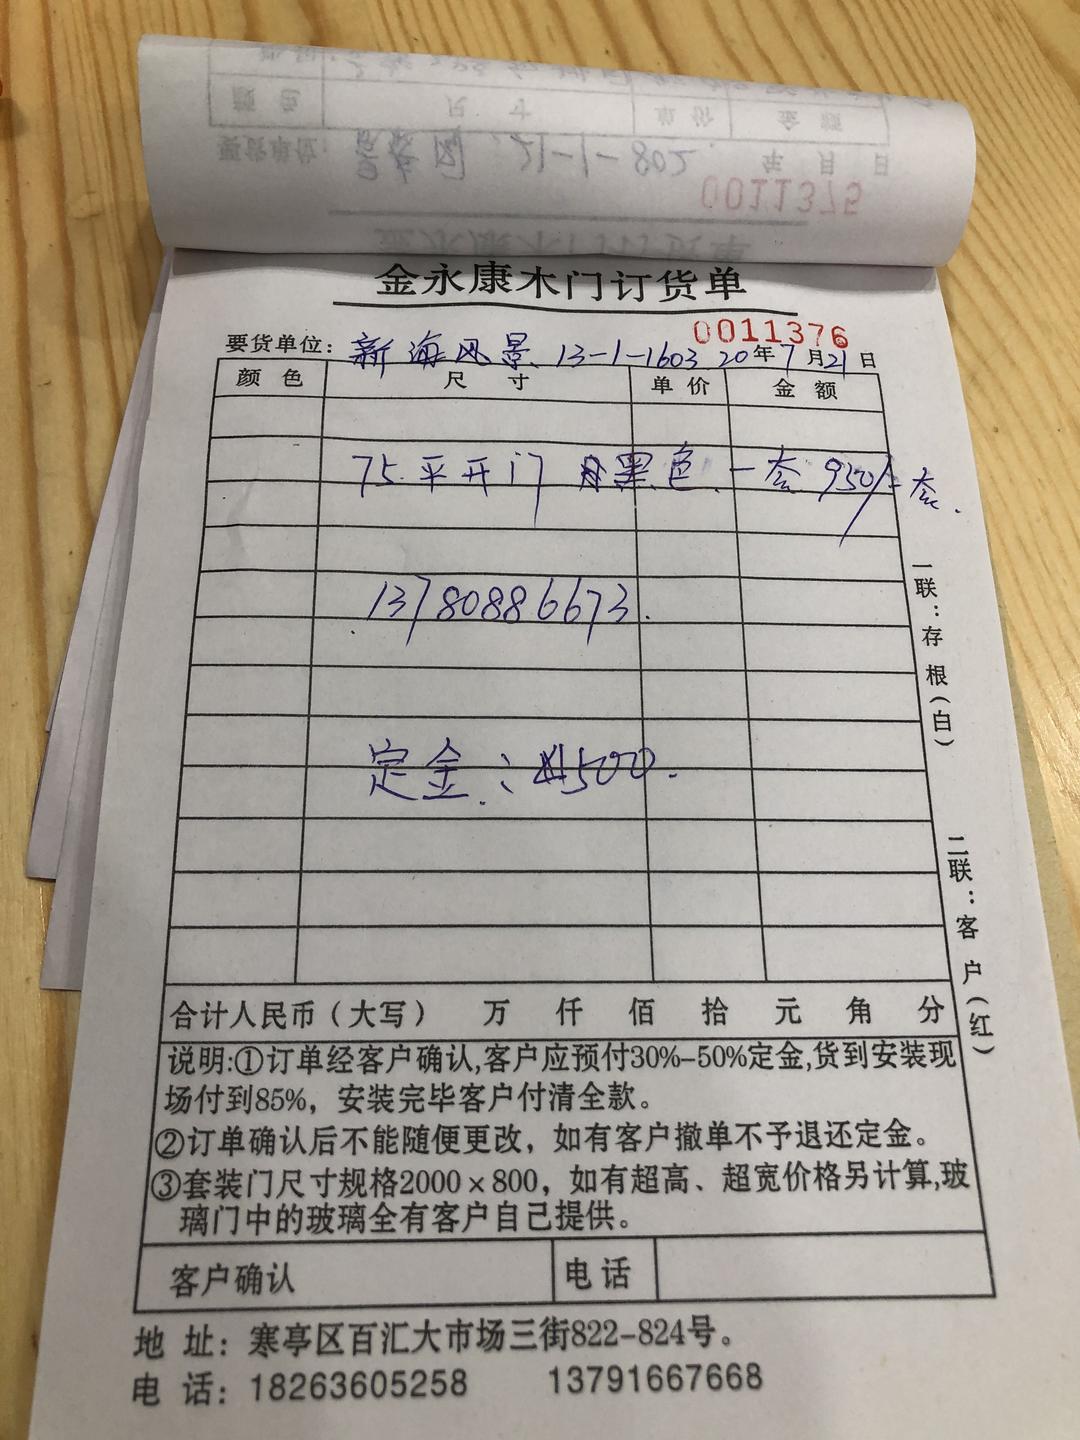 要货单位: 21-1-802 年 月 日
0011375
金永康木门订货单
0011376
要货单位: 新海风景 13-1-1603 20年7月21日
颜色 尺寸 单价 金额
75.平开门 黑色 一套 950/套.
13780886673.
定金: ¥500.
一联:存根(白)
二联:客户(红)
合计人民币(大写) 万 仟 佰 拾 元 角 分
说明:①订单经客户确认,客户应预付30%-50%定金,货到安装现
场付到85%,安装完毕客户付清全款。
②订单确认后不能随便更改,如有客户撤单不予退还定金。
③套装门尺寸规格2000×800,如有超高、超宽价格另计算,玻
璃门中的玻璃全有客户自己提供。
客户确认 电话
地址:寒亭区百汇大市场三街822-824号。
电话:18263605258 13791667668